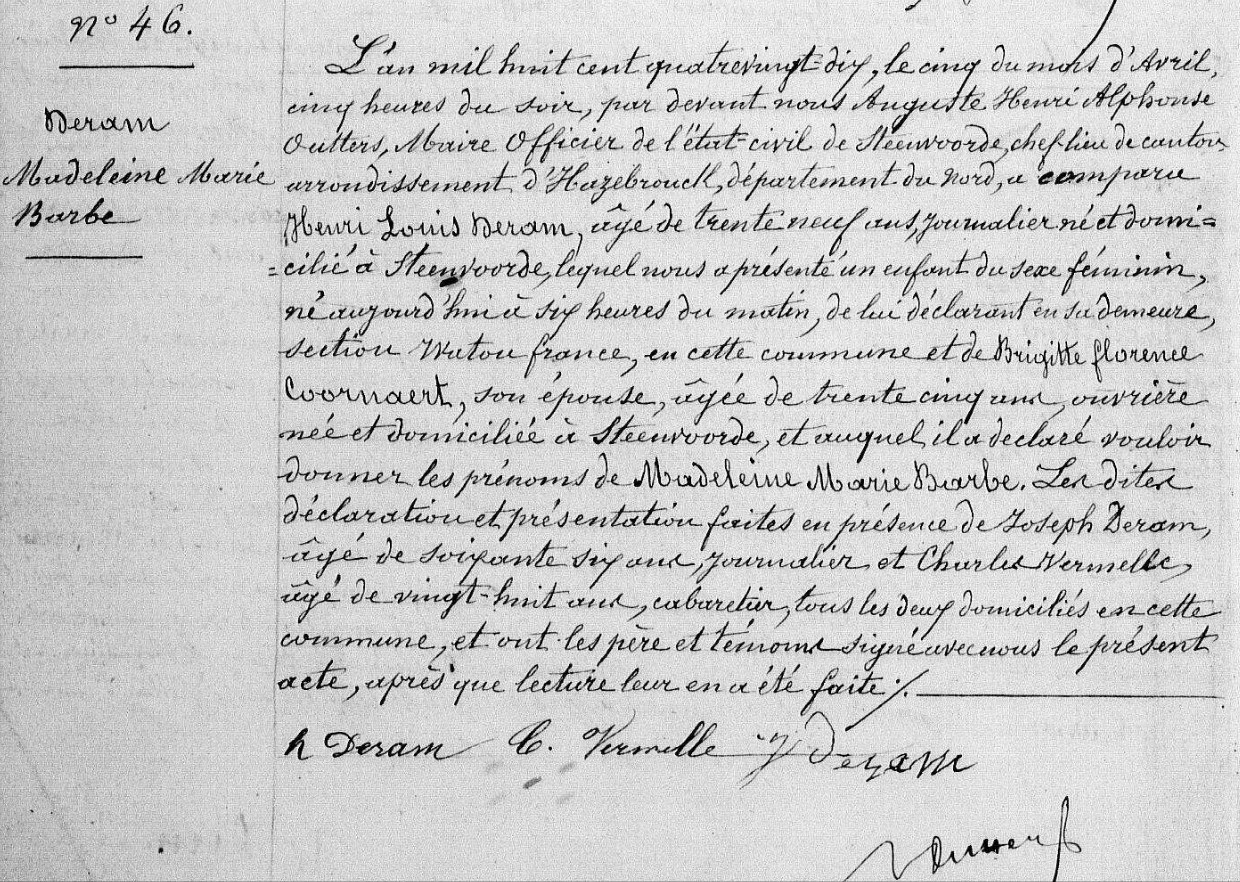 nº 46.
Deram
Madeleine Marie
Barbe
L'an mil huit cent quatrevingt-dix, le cinq du mois d'Avril,
cinq heures du soir, par devant nous Auguste Henri Alphonse
Outters, Maire Officier de l'état-civil de Steenvoorde, chef-lieu de canton,
arrondissement d'Hazebrouck, département du Nord, a comparu
Henri Louis Deram, âgé de trente neuf ans, journalier né et domi=
=cilié à Steenvoorde, lequel nous a présenté un enfant du sexe féminin,
né aujourd'hui à six heures du matin, de lui déclarant en sa demeure,
section Watou france, en cette commune et de Brigitte florence
Coornaert, son épouse, âgée de trente cinq ans, ouvrière
née et domiciliée à Steenvoorde, et auquel il a declaré vouloir
donner les prénoms de Madeleine Marie Barbe. Les dites
déclaration et présentation faites en présence de Joseph Deram,
âgé de soixante six ans, journalier et Charles Vermelle,
âgé de vingt-huit ans, cabaretier, tous les deux domiciliés en cette
commune, et ont les père et témoins signé avec nous le présent
acte, après que lecture leur en a été faite ./.
h Deram C. Vermelle j Deram